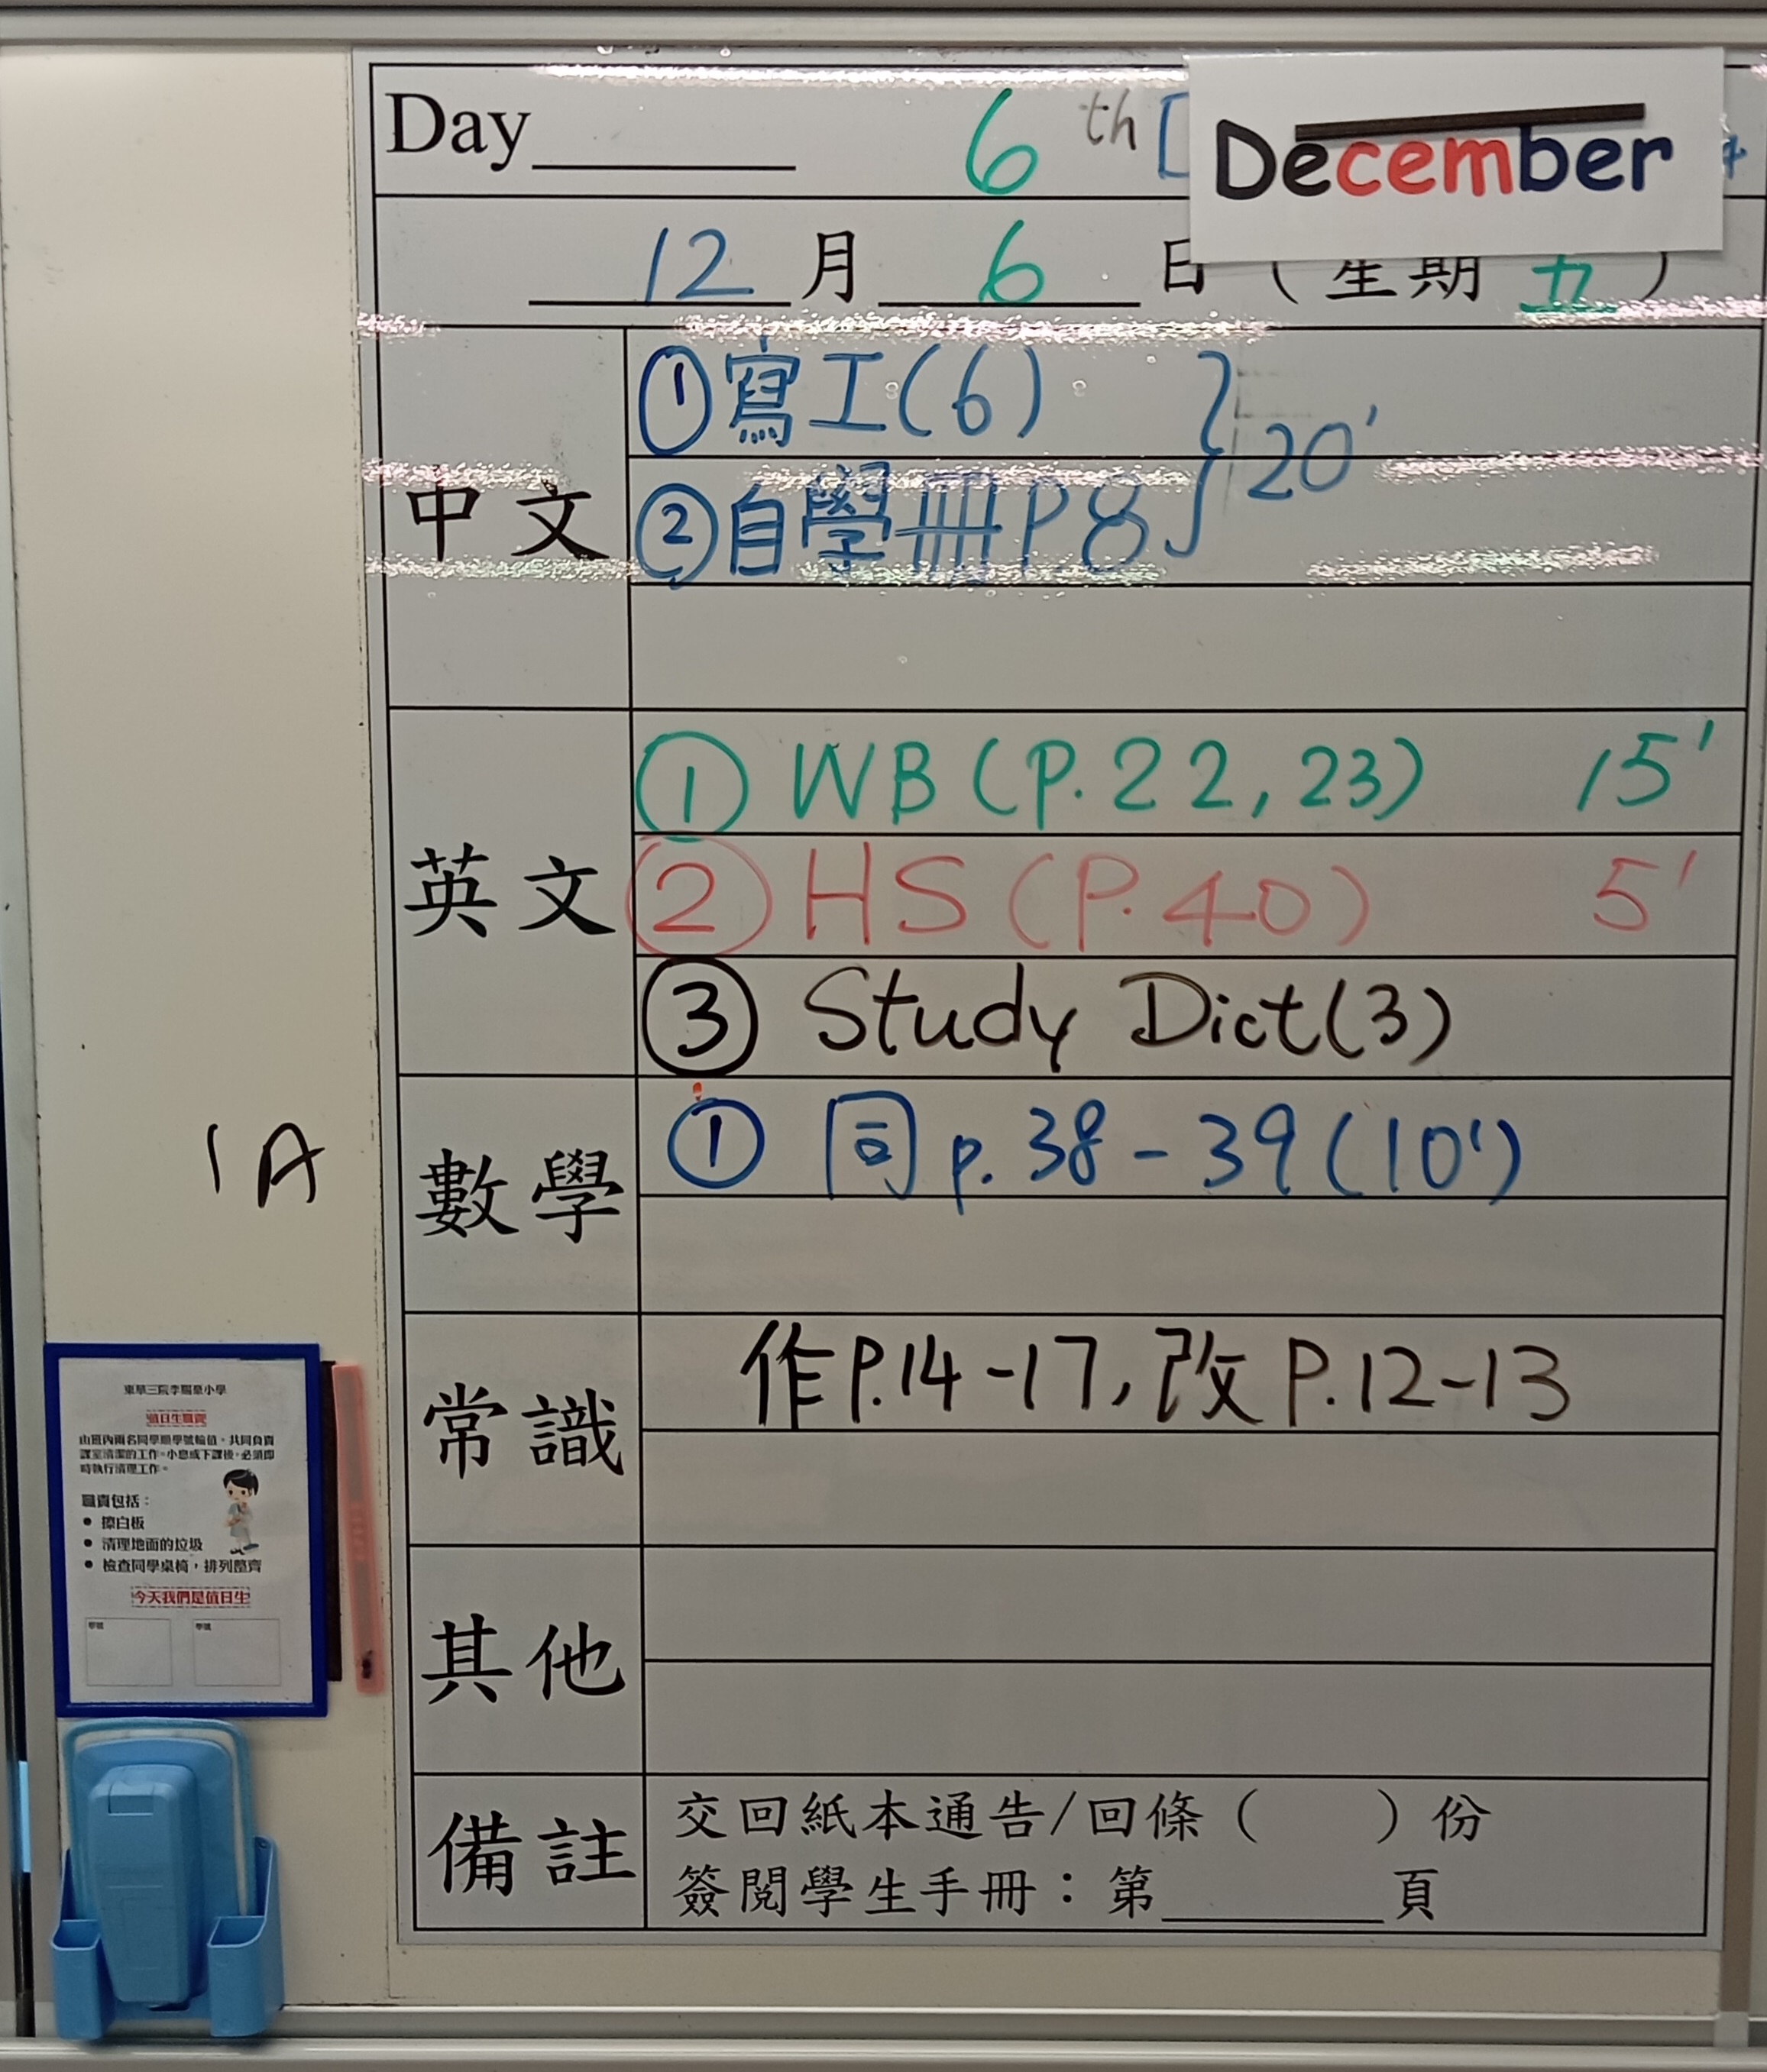 Day______ 6 th December
12 月 6 日 ( 星期 五 )
中文
① 寫工(6)
② 自學冊 P.8
20'
英文
① WB (P.22, 23) 15'
② HS (P.40) 5'
③ Study Dict(3)
數學
① 同 p.38-39 (10')
常識
作P.14-17, 改 P.12-13
其他
備註
交回紙本通告/回條 (    ) 份
簽閱學生手冊：第______頁
1A
值日生職責
由班內兩名同學順學號輪值，共同負責
課室清潔的工作。小息或下課後，必須即
時執行清理工作。
職責包括：
• 擦白板
• 清理地面的垃圾
• 檢查同學桌椅，排列整齊
今天我們是值日生
學號 學號